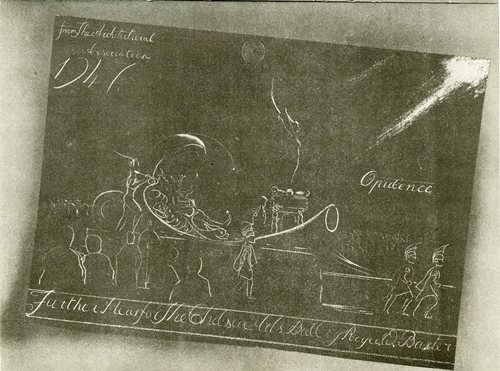 from The Architectural
Association
1947
Opulence
Further Ideas for The Chelsea Arts Ball Baxter